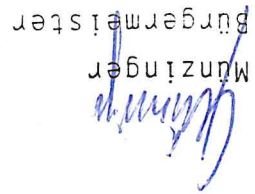 Münzinger
Bürgermeister